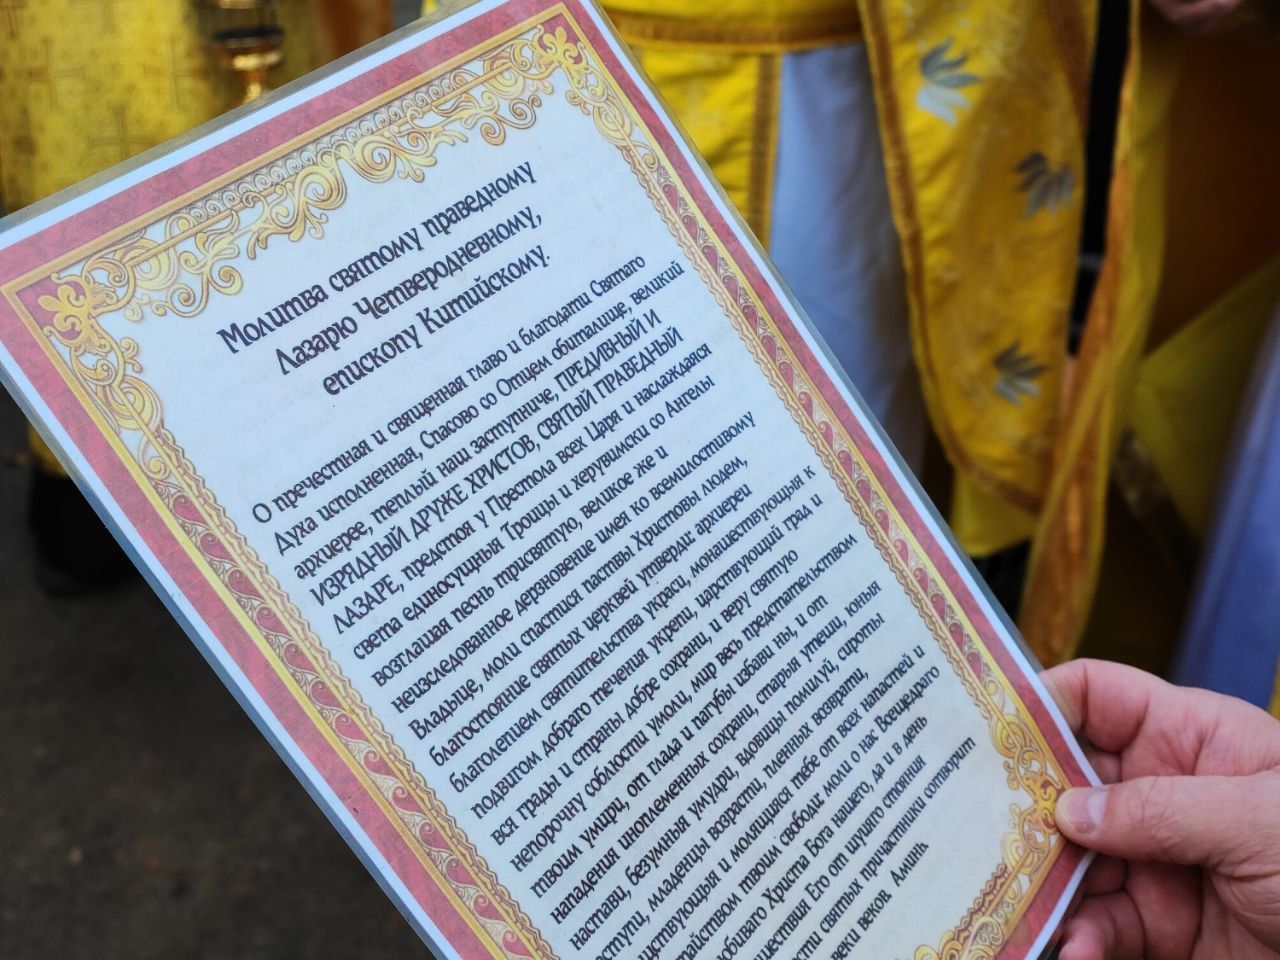 Молитва святому праведному
Лазарю Четверодневному,
епископу Китийскому.
О пречестная и священная главо и благодати Святаго
Духа исполненная, Спасово со Отцем обиталище, великий
архиерее, теплый наш заступниче, ПРЕДИВНЫЙ И
ИЗРЯДНЫЙ ДРУЖЕ ХРИСТОВ, СВЯТЫЙ ПРАВЕДНЫЙ
ЛАЗАРЕ, предстоя у Престола всех Царя и наслаждаяся
света единосущныя Троицы и херувимски со Ангелы
возглашая песнь трисвятую, великое же и
неизследованное дерзновение имея ко всемилостивому
Владыце, моли спастися паствы Христовы людем,
благостояние святых церквей утверди: архиереи
благолепием святительства украси, монашествующыя к
подвигом добраго течения укрепи, царствующий град и
вся грады и страны добре сохрани, и веру святую
непорочну соблюсти умоли, мир весь предстательством
твоим умири, от глада и пагубы избави ны, и от
нападения иноплеменных сохрани, старыя утеши, юныя
настави, безумныя умудри, вдовицы помилуй, сироты
заступи, младенцы возрасти, плененных возврати,
и молящияся тебе от всех напастей и
твоим свободи: моли о нас Всещедраго
Христа Бога нашего, да и в день
Его от шуяго стояния
святых причастники сотворит
веки веков. Аминь.